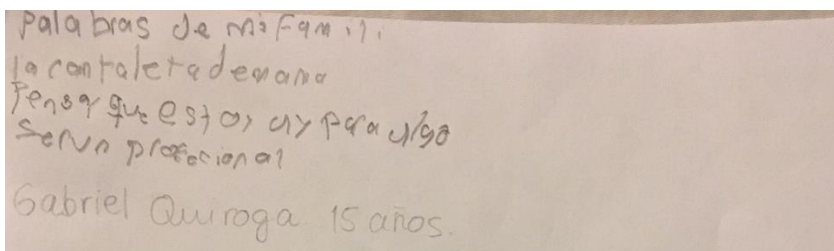 Palabras de mi Famili
la cantaleta de mama
Pensar que estoy ay para algo
Ser un profecional
Gabriel Quiroga 15 años.